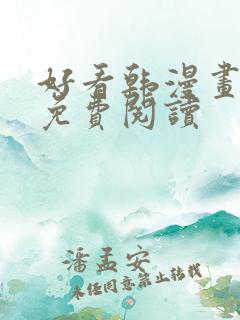 好看韩漫畫
免費閱讀
潘孟安
未任同意禁止转载